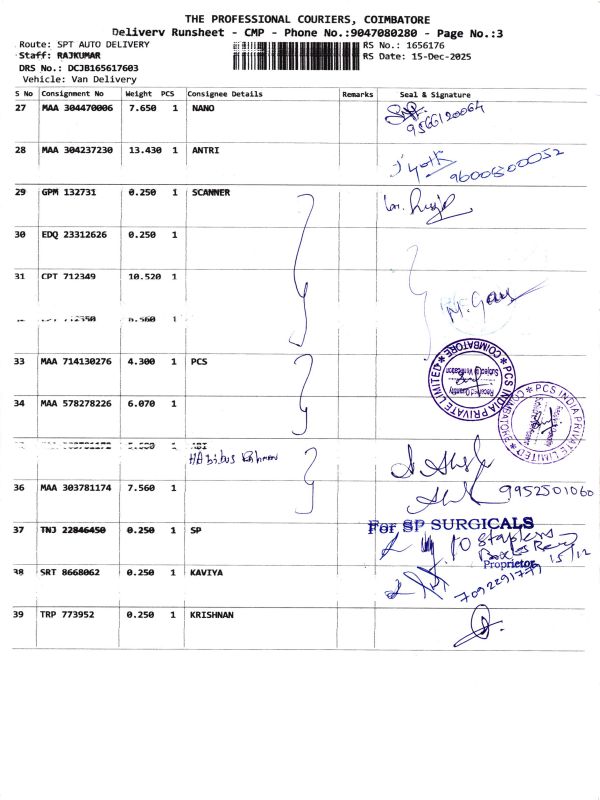 THE PROFESSIONAL COURIERS, COIMBATORE
Delivery Runsheet - CMP - Phone No.:9047080280 - Page No.:3
Route: SPT AUTO DELIVERY RS No.: 1656176
Staff: RAJKUMAR RS Date: 15-Dec-2025
DRS No.: DCJB165617603
Vehicle: Van Delivery
S No Consignment No Weight PCS Consignee Details Remarks Seal & Signature
27 MAA 304470006 7.650 1 NANO
9566120064
28 MAA 304237230 13.430 1 ANTRI
9600600052
29 GPM 132731 0.250 1 SCANNER
30 EDQ 23312626 0.250 1
31 CPT 712349 10.520 1
1
33 MAA 714130276 4.300 1 PCS
PCS INDIA PRIVATE LIMITED COIMBATORE
Received Quantity
Subject to Verification
34 MAA 578278226 6.070 1
PCS INDIA PRIVATE LIMITED COIMBATORE
36 MAA 303781174 7.560 1
9952501060
37 TNJ 22846450 0.250 1 SP
For SP SURGICALS
10 Staplers
Proprietor
15/12
38 SRT 8668062 0.250 1 KAVIYA
39 TRP 773952 0.250 1 KRISHNAN